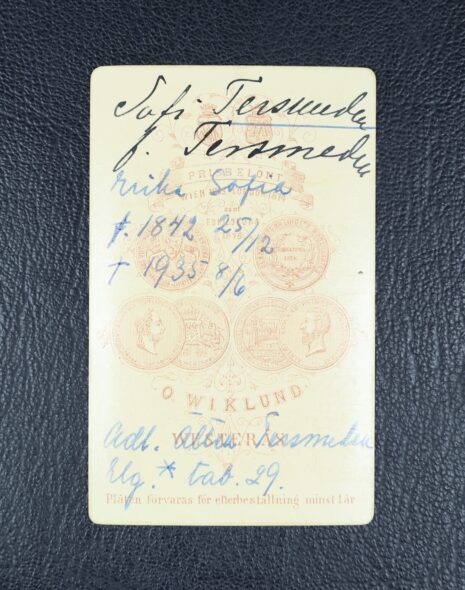 Sofi Tersmeden
f. Tersmeden
PRISBELÖNT
Erika Sofia
WIEN
f. 1842 25/12
† 1935 8/6
O. WIKLUND.
WESTERÅS
Adl. Ätten Tersmeden
Elg.* tab. 29.
Plåten förvaras för efterbeställning minst 1 år